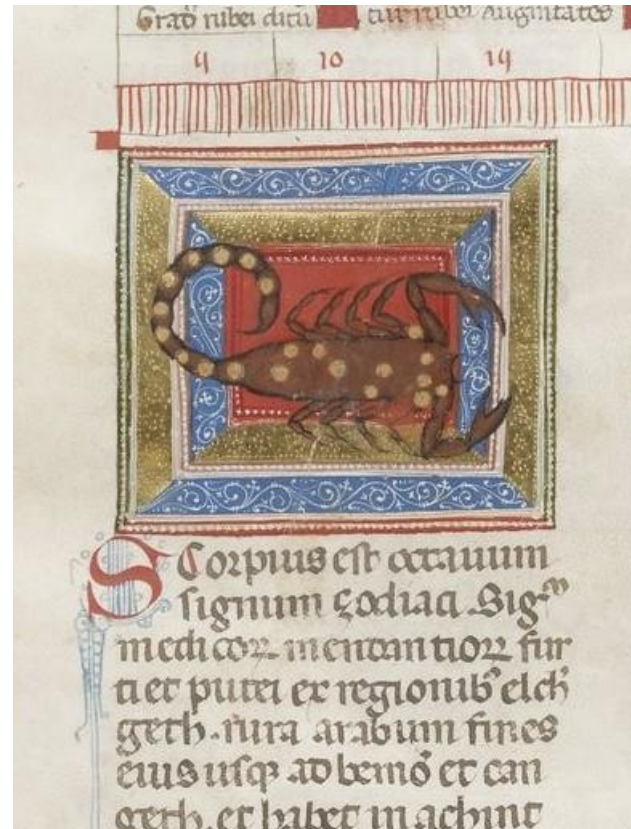 Grad rubei dicu tur rubei Augmtates
9 10 19
SCorpius est octauum
signum zodiaci Sigm
medicoꝝ mentantioꝝ fur
ti et putei ex regionib elch
geth. rura arabum fines
eius usqꝫ ad bemō et can
geth. et habet in achint